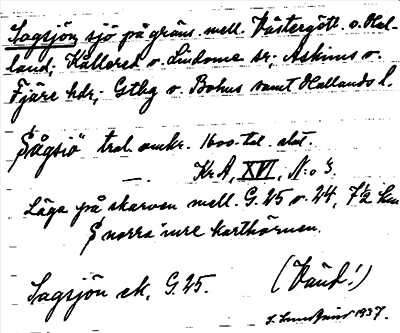 Sagsjön, sjö på gräns mell. Västergötl. o. Hal-
land; Kållered o. Lindome sn; Askims o.
Fjäre hdr; Gtbg o. Bohus samt Hallands l.
Sågsiö trol. omkr. 1600-tal. slut.
Kr A, XVI, N:o 3.
Läge på skarven mell. G. 25 o. 24, 7½ km
S norra inre karthörnen.
Sagsjön ek. G. 25. (Vänd!)
1937.